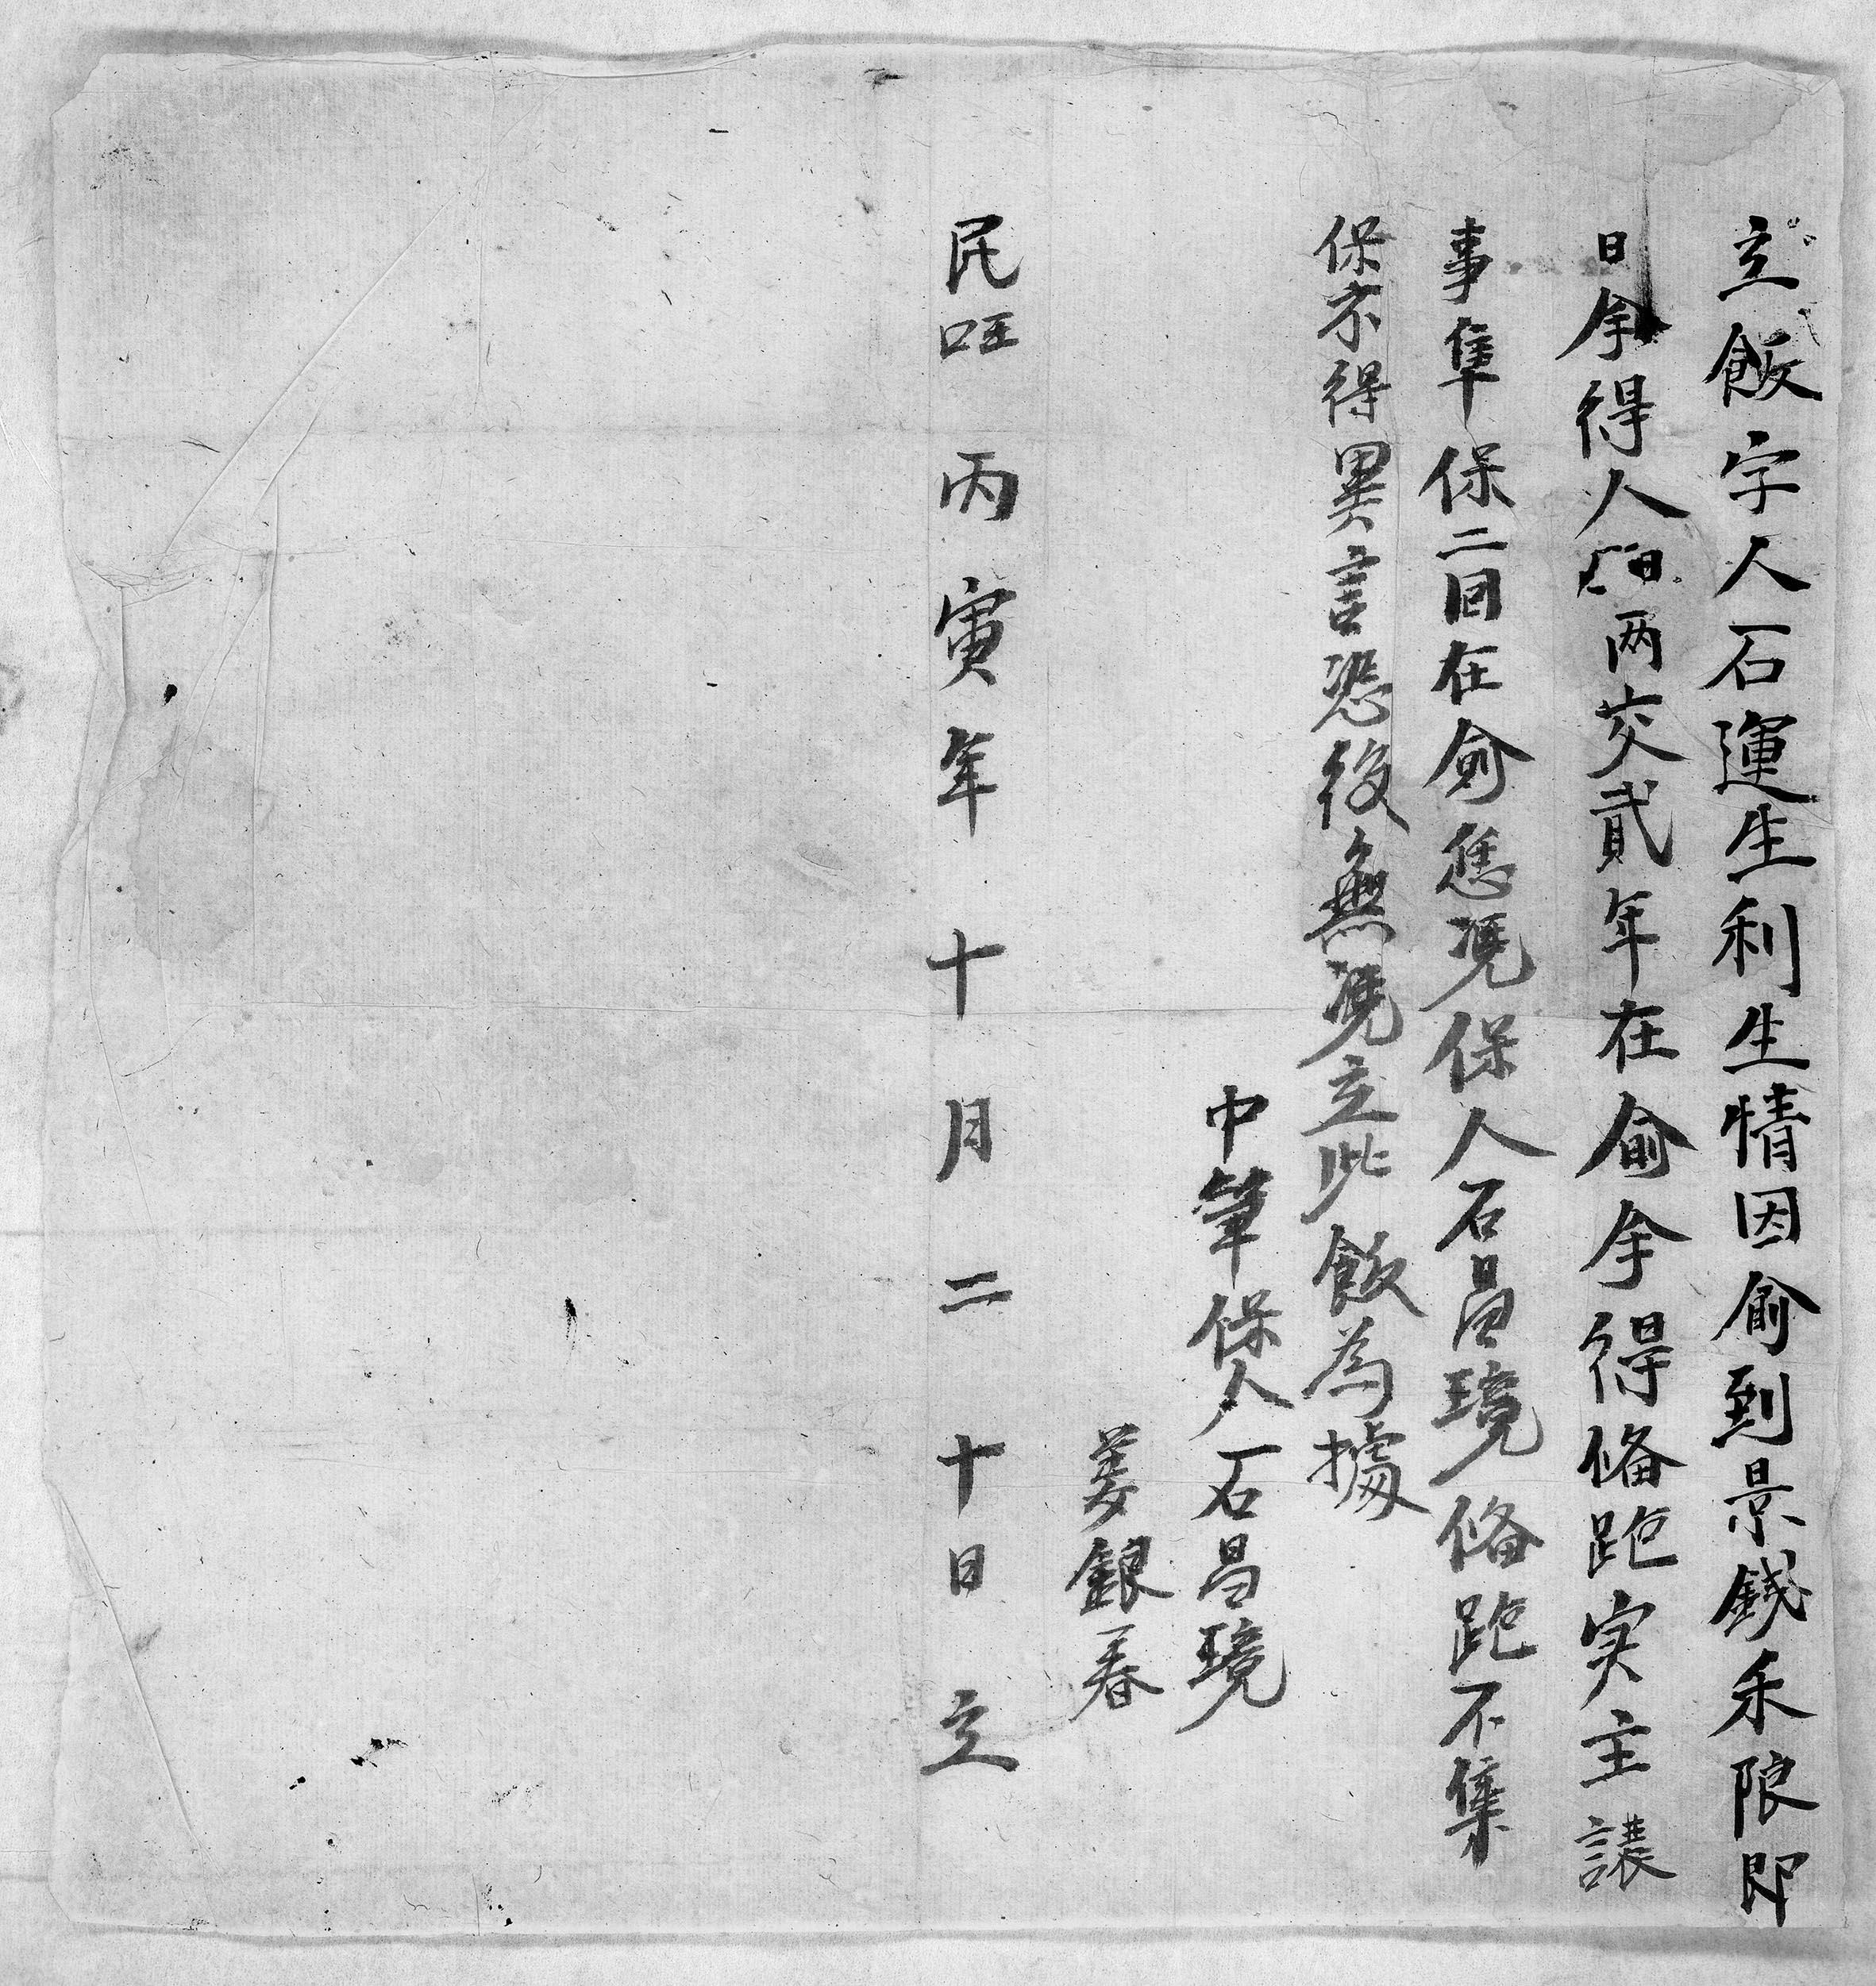 立飯字人石運生利生情因俞到景錢禾限即
日拿得人两交貳年在俞拿得俻跑实主讓
事隼保二回在俞慿凴保人石昌璄俻跑不隼
保不得異言恐後無凴立此飯為據
中筆保人石昌璄
姜銀春
民囯丙寅年十月二十日立